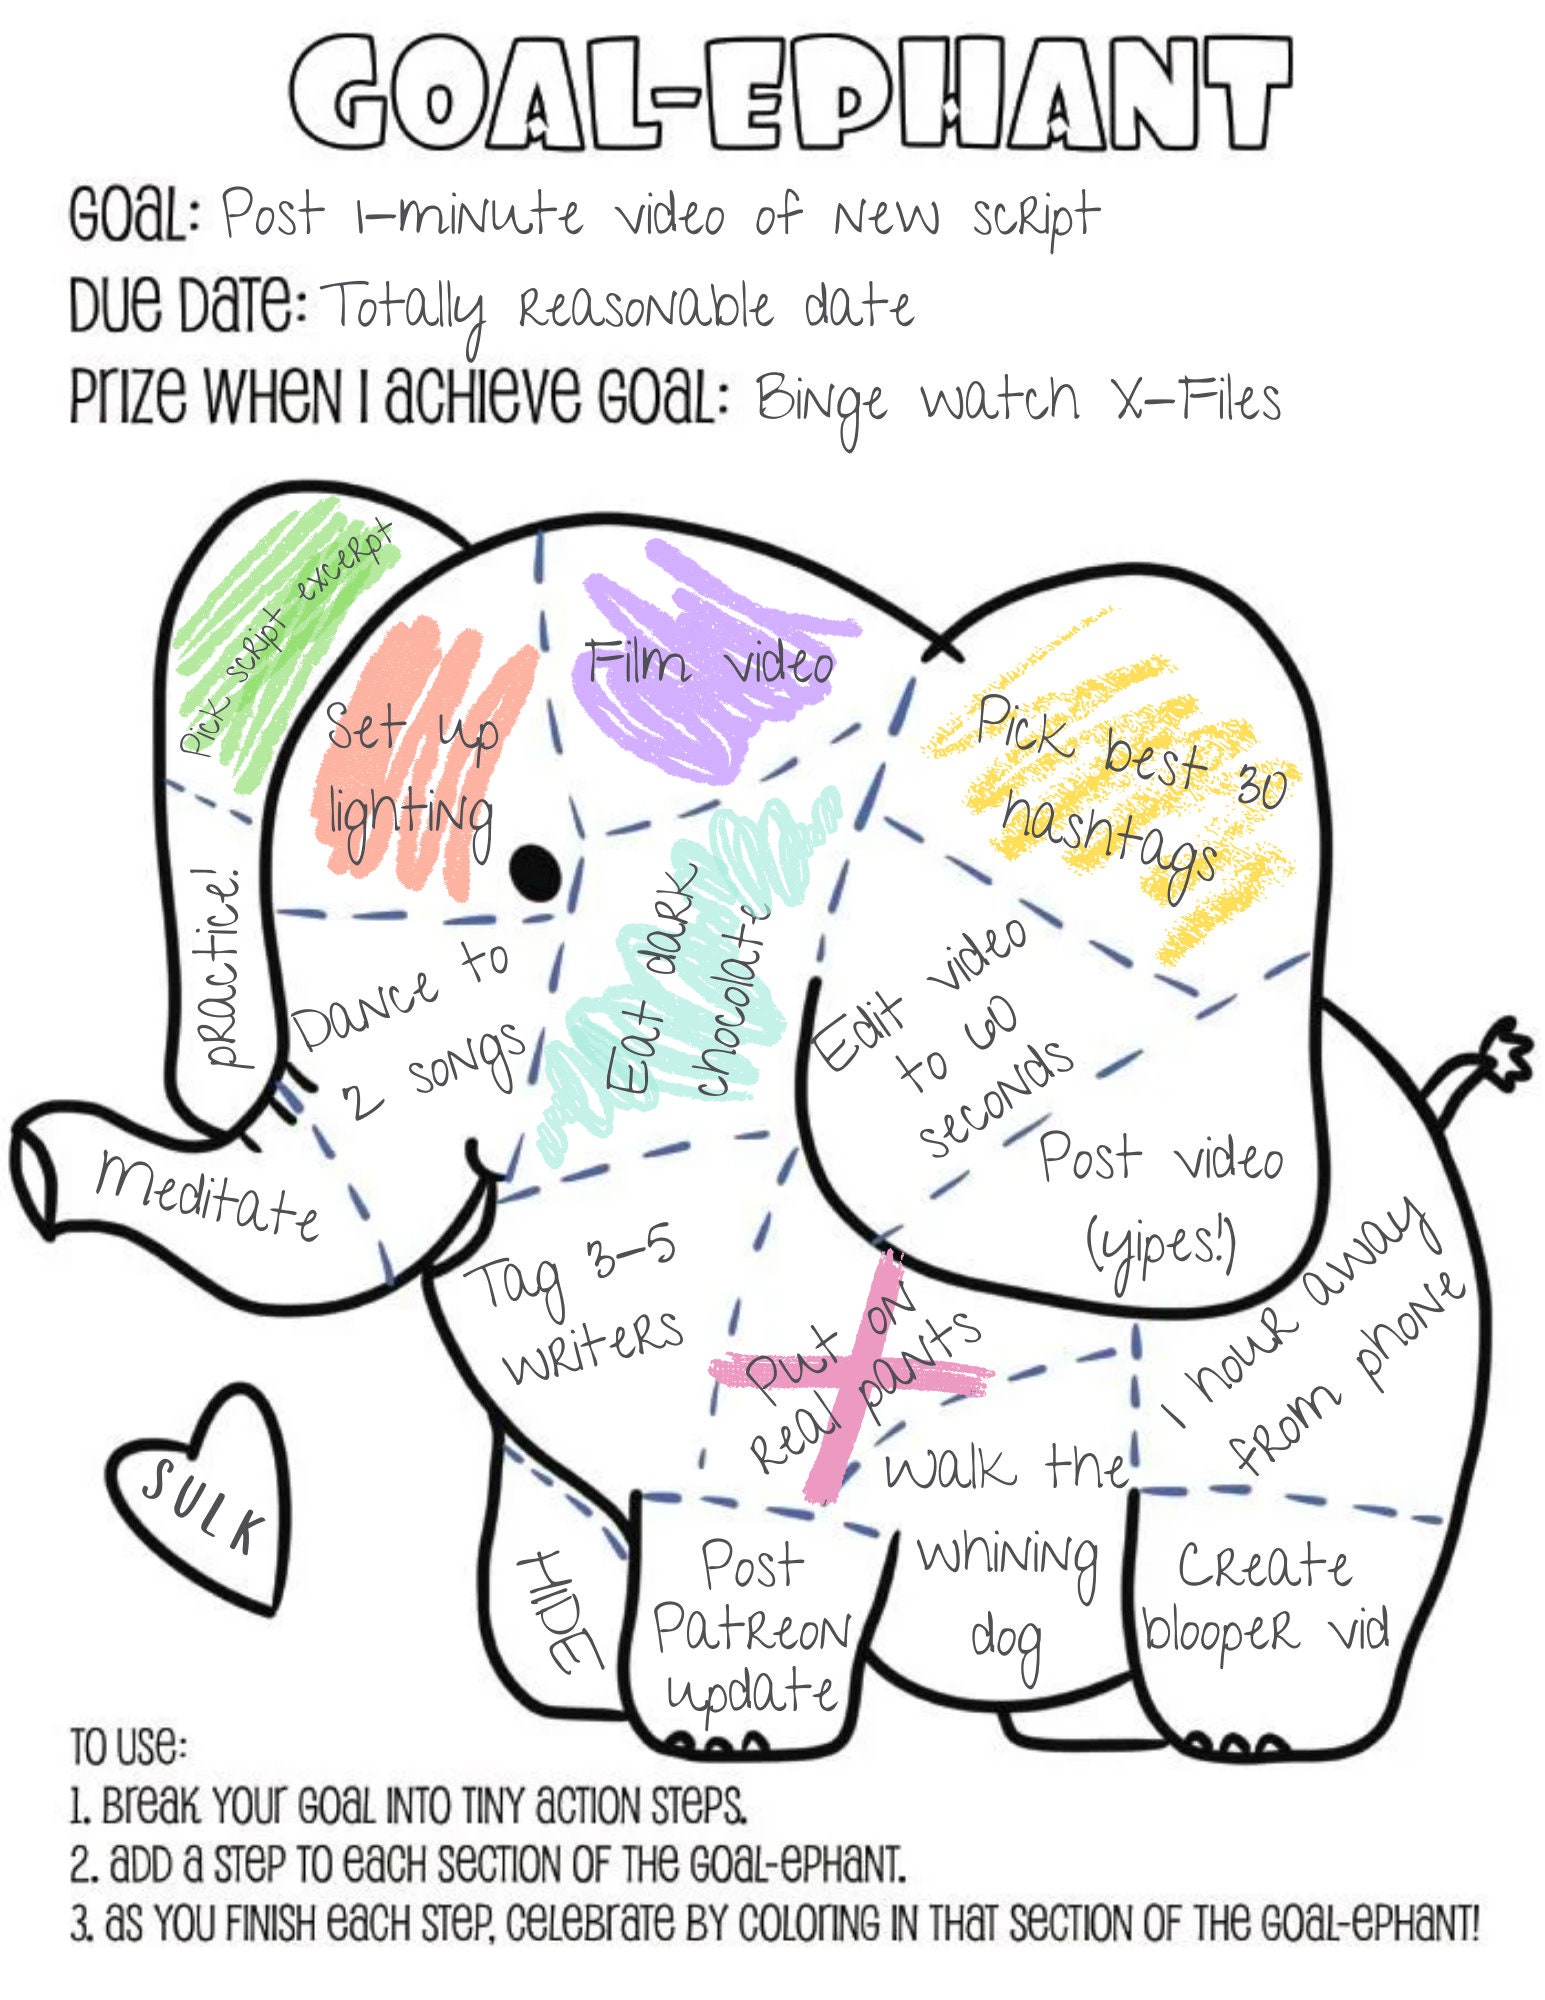 GOAL-EPHANT
GOAL: Post 1-minute video of new script
DUE DATE: Totally reasonable date
PRIZE WHEN I ACHIEVE GOAL: Binge watch X-Files
Pick script excerpt
Set up
lighting
Film video
Pick best 30
hashtags
practice!
Dance to
2 songs
Eat dark
chocolate
Edit video
to 60
seconds
Post video
(yipes!)
Meditate
Tag 3-5
writers
Put on
real pants
1 hour away
from phone
SULK
HIDE
Post
Patreon
update
Walk the
whining
dog
Create
blooper vid
TO USE:
1. BREAK YOUR GOAL INTO TINY ACTION STEPS.
2. ADD A STEP TO EACH SECTION OF THE GOAL-EPHANT.
3. AS YOU FINISH EACH STEP, CELEBRATE BY COLORING IN THAT SECTION OF THE GOAL-EPHANT!